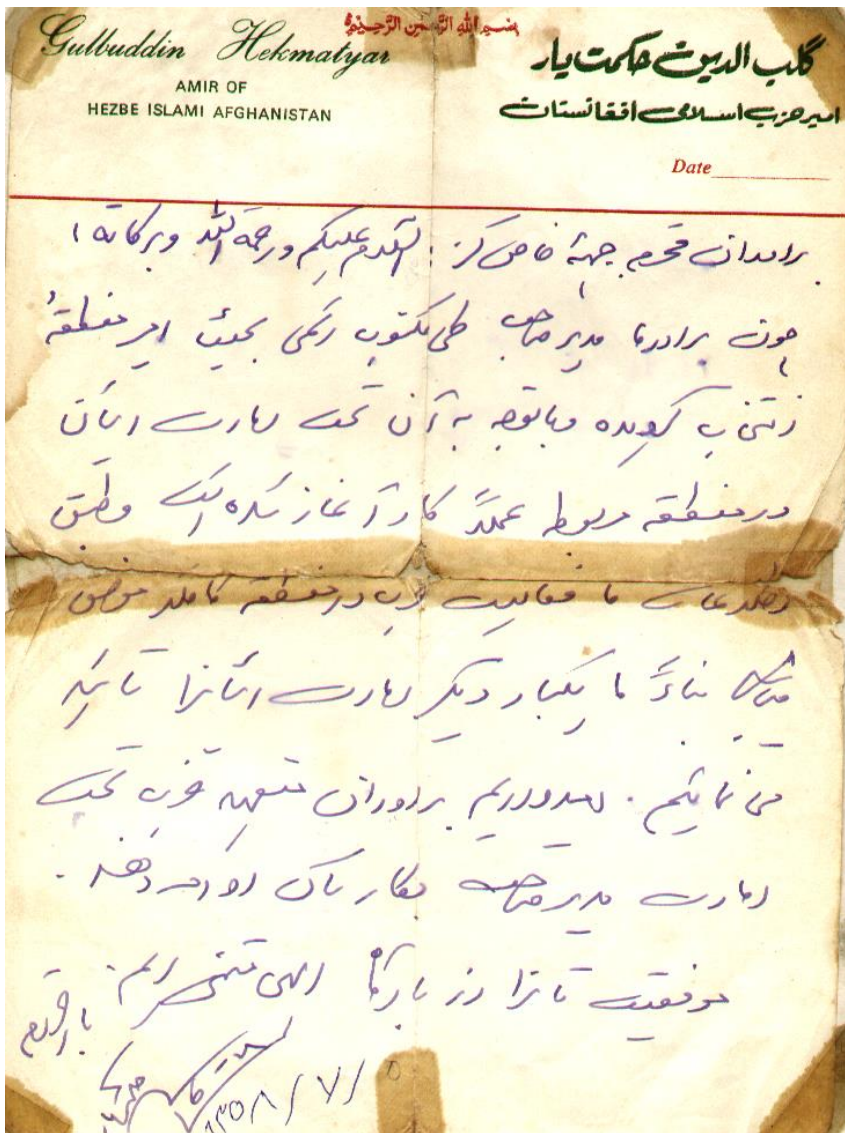 بسم الله الرحمن الرحيم
Gulbuddin Hekmatyar
AMIR OF
HEZBE ISLAMI AFGHANISTAN
گلب الدین حکمت یار
امیر حزب اسلامی افغانستان
Date
برادران محترم جبهۀ خاص کز : السلام علیکم ورحمة الله وبرکاته ؛
چون برادر ما مدیر صاحب طی مکتوب رسمی بحیث امیر منطقهٔ
انتخاب گردیده و با توجه به آن تحت امارت ایشان
در منطقه مربوط عملاً کار آغاز شده است و طبق
اطلاعات ما فعالیت حزب در منطقه کاملاً موفق
میباشد بناءً ما یکبار دیگر امارت ایشانرا تائید
می نمائیم . امیدواریم برادران متعهد حزب تحت
امارت مدیر صاحب بکار شان ادامه دهند .
موفقیت تانرا از بارگاه الهی تمنی داریم . با احترام
۱۳۵۸/۷/۵